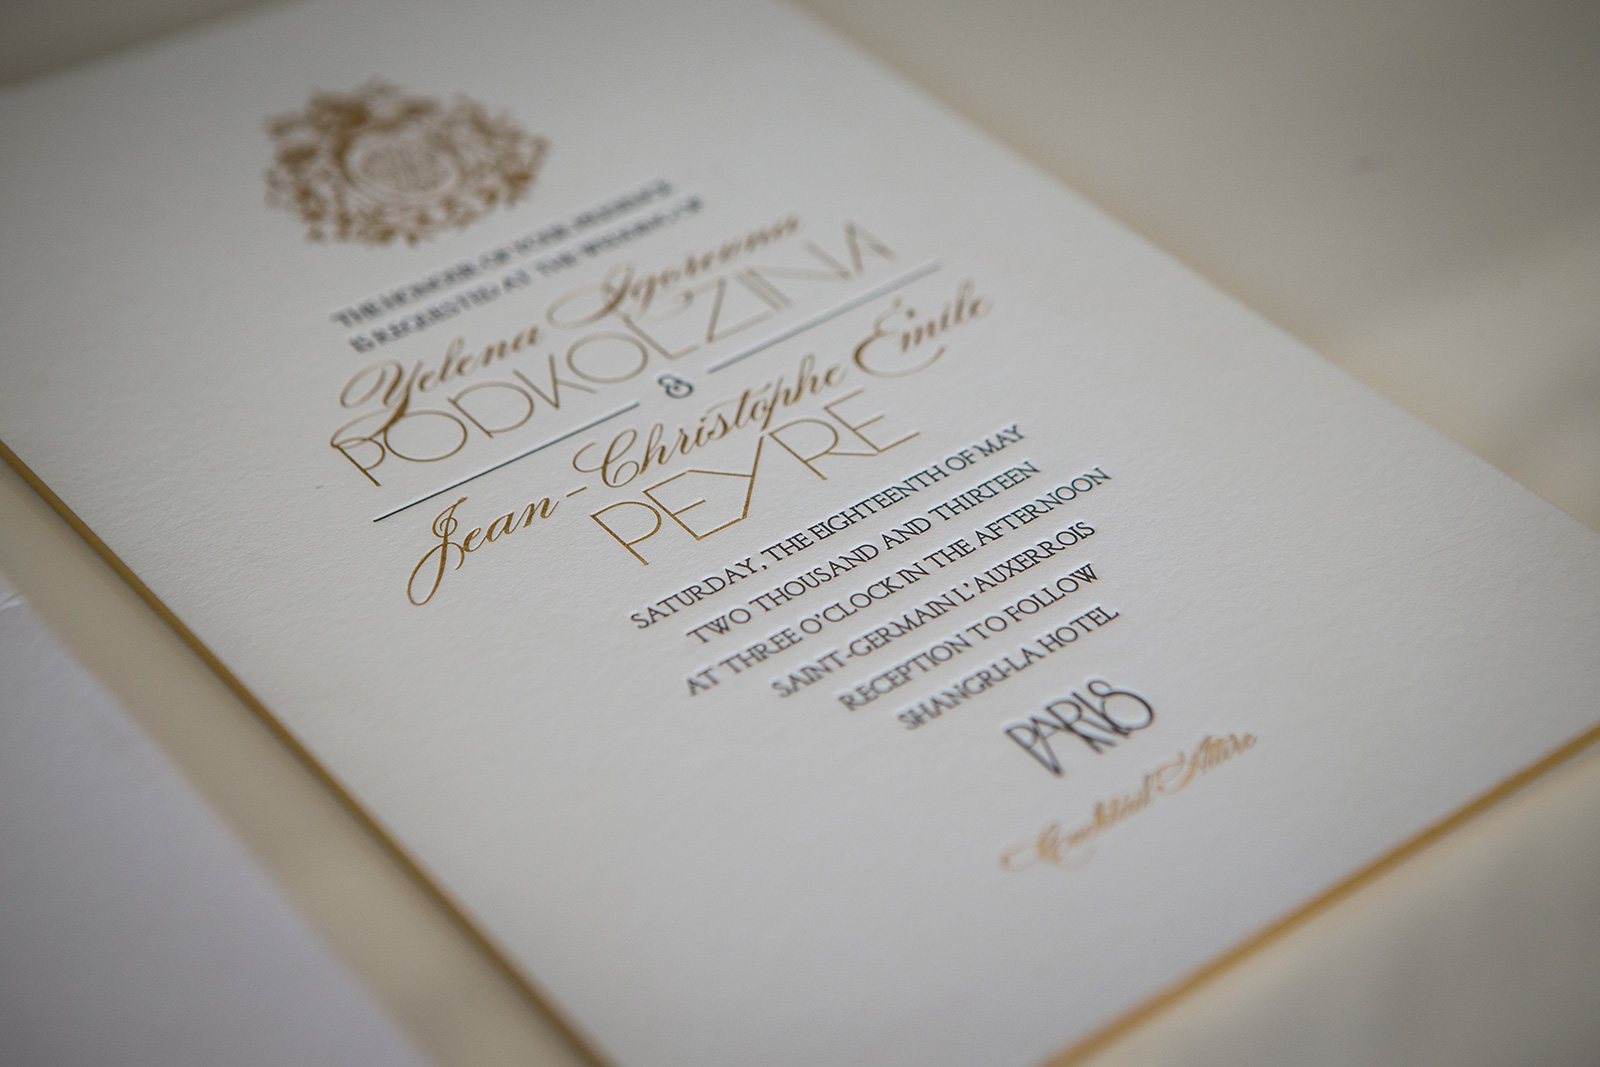 THE HONOUR OF YOUR PRESENCE
IS REQUESTED AT THE WEDDING OF
Yelena Igorevna
PODKOLZINA
&
Jean-Christophe Émile
PEYRE
SATURDAY, THE EIGHTEENTH OF MAY
TWO THOUSAND AND THIRTEEN
AT THREE O'CLOCK IN THE AFTERNOON
SAINT-GERMAIN L'AUXERROIS
RECEPTION TO FOLLOW
SHANGRI-LA HOTEL
PARIS
Cocktail Attire